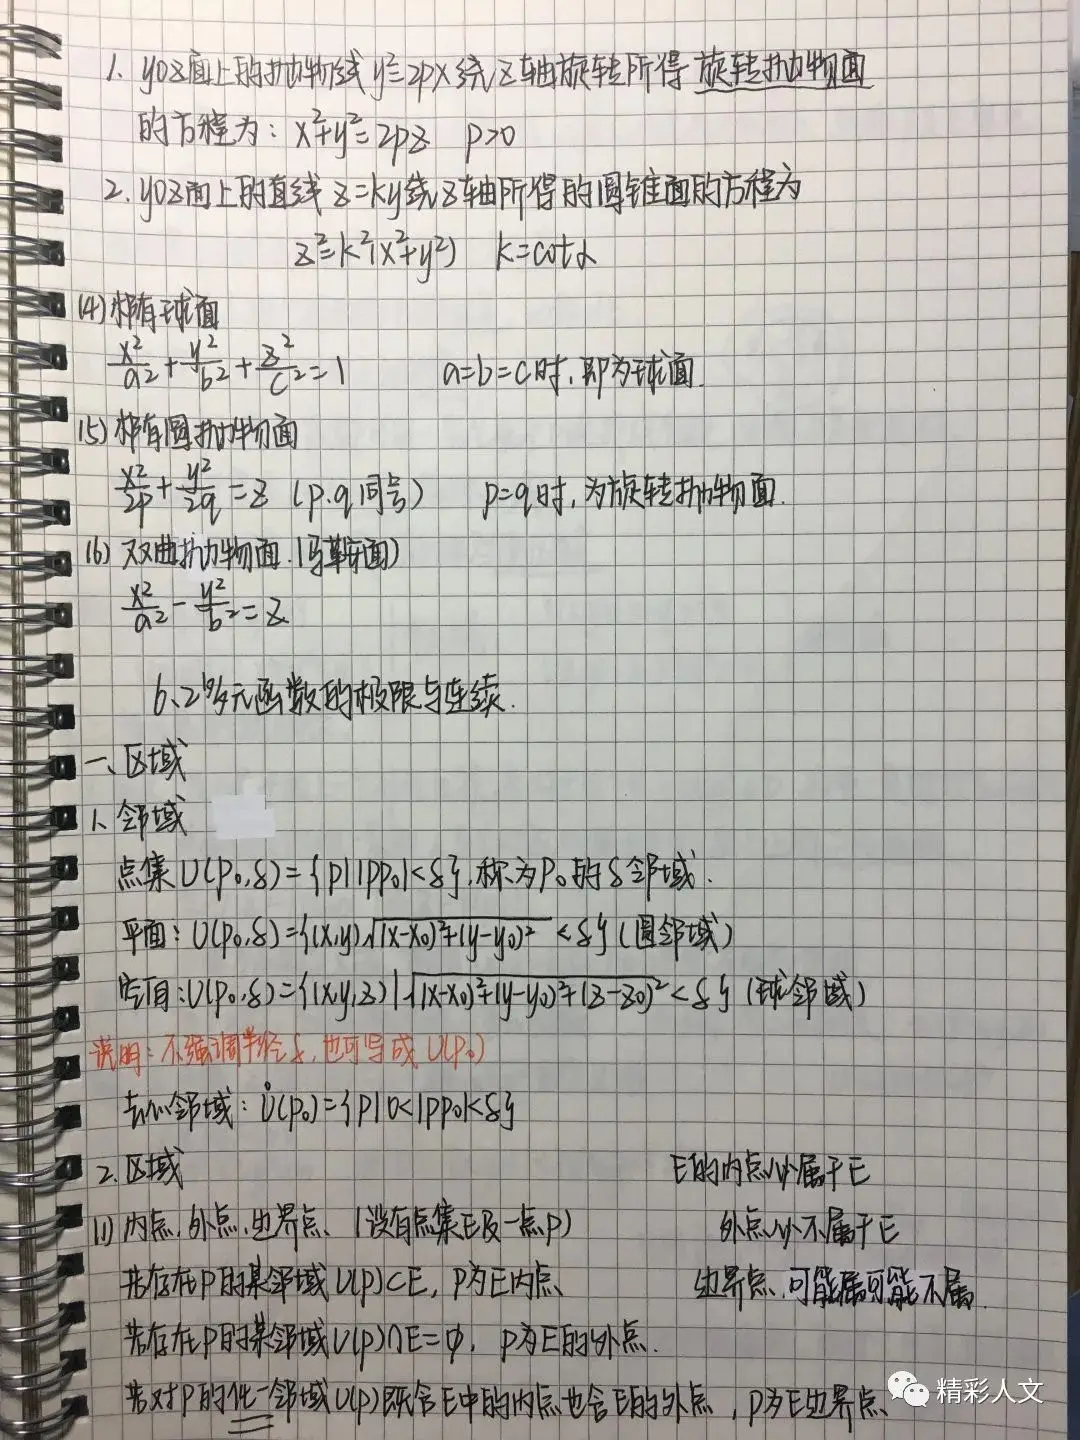 1. yoz面上的抛物线 y²=2px绕z轴旋转所得 旋转抛物面
的方程为：x²+y²=2pz p>0
2. yoz面上的直线 z=ky绕z轴所得的圆锥面的方程为
z²=k²(x²+y²) k=cotα
(4) 椭球面
x²/a²+y²/b²+z²/c²=1 a=b=c时，即为球面.
(5) 椭圆抛物面
x²/2p+y²/2q=z (p.q同号) p=q时，为旋转抛物面.
(6) 双曲抛物面.(马鞍面)
x²/a²-y²/b²=z
6.2 多元函数的极限与连续.
一、区域
1、邻域
点集U(p₀,δ)={p||pp₀|<δ},称为P₀的δ邻域.
平面：U(p₀,δ)={(x,y),√(x-x₀)²+(y-y₀)² <δ} (圆邻域)
空间：U(p₀,δ)={(x,y,z)|√(x-x₀)²+(y-y₀)²+(z-z₀)² <δ} (球邻域)
说明：不强调半径δ,也可写成U(p₀)
去心邻域：Ů(p₀)={p|0<|pp₀|<δ}
2.区域 E的内点必属于E
(1) 内点,外点,边界点、(设有点集E及一点p) 外点必不属于E
若存在P的某邻域U(p)⊂E, P为E内点、 边界点,可能属可能不属.
若存在P的某邻域U(p)∩E=φ, p为E的外点.
若对P的任一邻域U(p)既含E中的内点也含E的外点,P为E边界点、
精彩人文